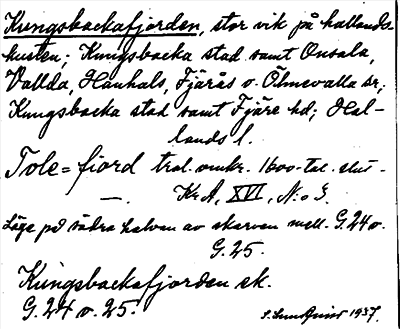 Kungsbackafjorden, stor vik på hallands-
kusten; Kungsbacka stad samt Onsala,
Vallda, Hanhals, Fjärås o. Ölmevalla sr,
Kungsbacka stad samt Fjäre hd; Hal-
lands l.
Tole=fiord tral. omkr. 1600-tal. slut -
—. KrA, XVI, N:o 3.
Läge på södra halven av skarven mell. G.24 o.
G.25.
Kungsbackafjorden ek.
G.24 o. 25.
S. Lundquist 1937.